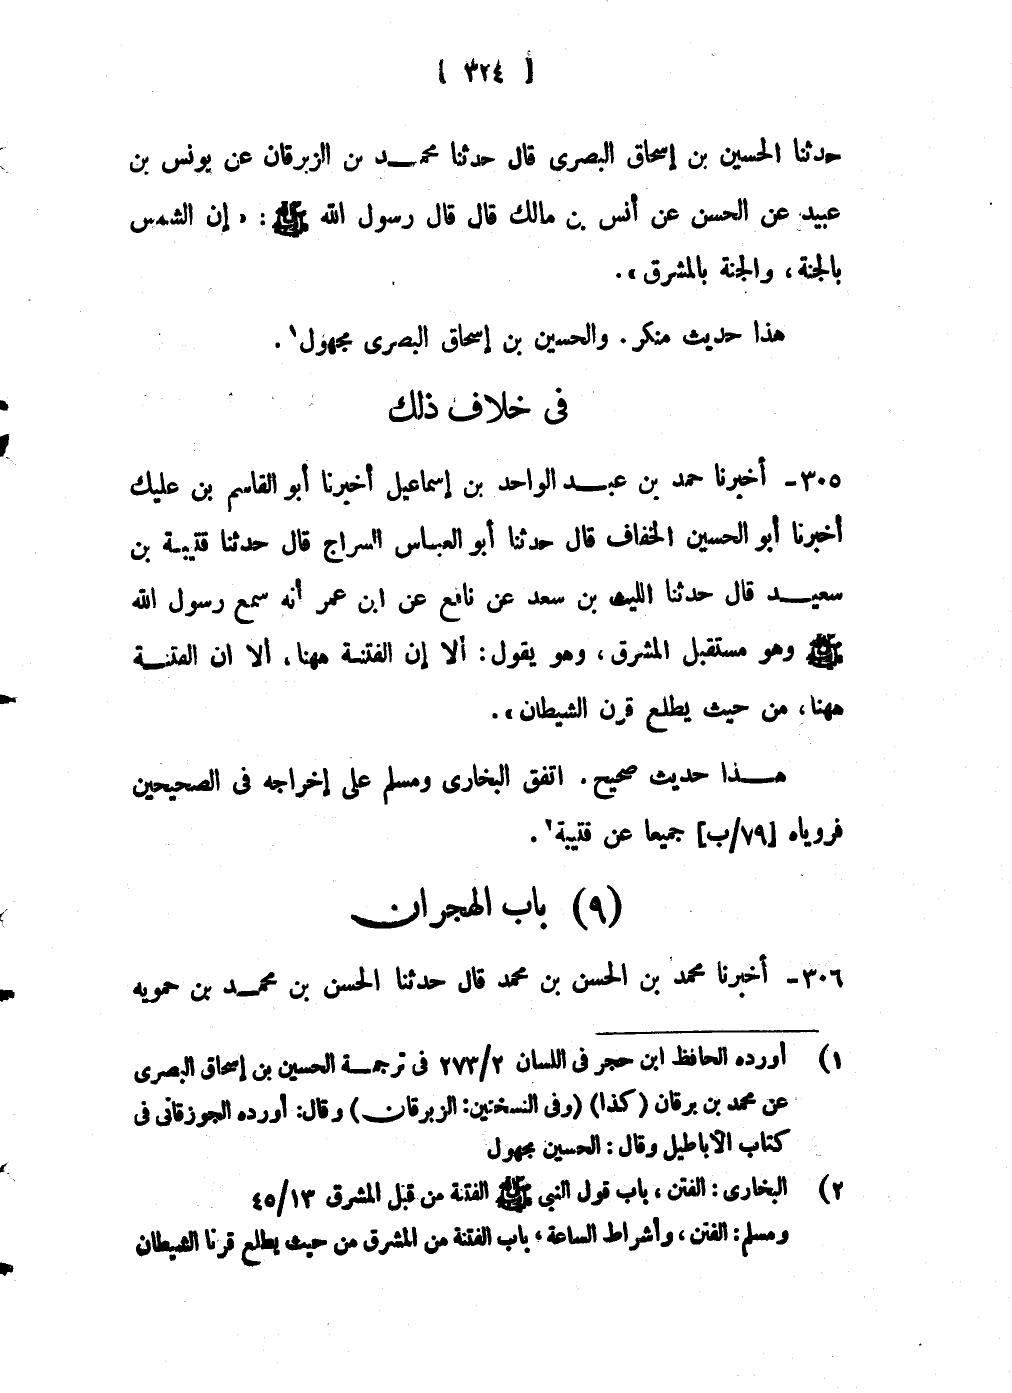 [ ٣٢٤ ]
حدثنا الحسين بن إسحاق البصرى قال حدثنا محمد بن الزبرقان عن يونس بن
عبيد عن الحسن عن أنس بن مالك قال قال رسول الله ﷺ : « إن الشمس
بالجنة ، والجنة بالمشرق » .
هذا حديث منكر . والحسين بن إسحاق البصرى مجهول١ .
فى خلاف ذلك
٣٠٥ - أخبرنا حمد بن عبد الواحد بن إسماعيل أخبرنا أبو القاسم بن عليك
أخبرنا أبو الحسين الخفاف قال حدثنا أبو العباس السراج قال حدثنا قتيبة بن
سعيد قال حدثنا الليث بن سعد عن نافع عن ابن عمر أنه سمع رسول الله
ﷺ وهو مستقبل المشرق ، وهو يقول : ألا إن الفتنة ههنا ، ألا ان الفتنة
ههنا ، من حيث يطلع قرن الشيطان » .
هذا حديث صحيح . اتفق البخارى ومسلم على إخراجه فى الصحيحين
فروياه [٧٩/ب] جميعا عن قتيبة٢ .
(٩) باب الهجران
٣٠٦ - أخبرنا محمد بن الحسن بن محمد قال حدثنا الحسن بن محمد بن حمويه
١) أورده الحافظ ابن حجر فى اللسان ٢٧٣/٢ فى ترجمة الحسين بن إسحاق البصرى
عن محمد بن برقان (كذا) (وفى النسختين : الزبرقان) وقال : أورده الجوزقانى فى
كتاب الآباطيل وقال : الحسين مجهول
٢) البخارى : الفتن ، باب قول النبى ﷺ الفتنة من قبل المشرق ٤٥/١٣
ومسلم : الفتن ، وأشراط الساعة ، باب الفتنة من المشرق من حيث يطلع قرنا الشيطان